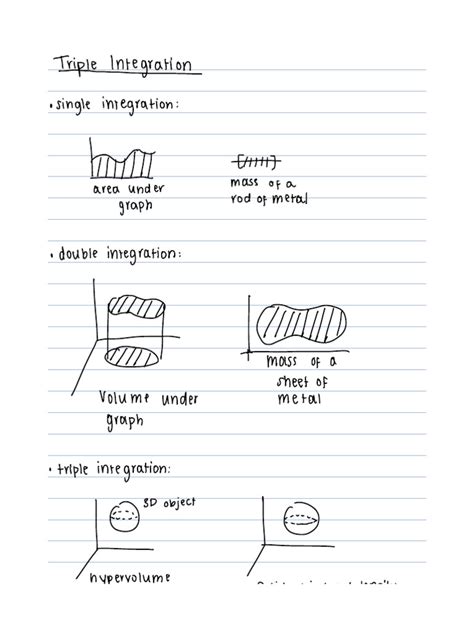 Triple Integration
• single integration:
area under
graph
mass of a
rod of metal
• double integration:
Volume under
graph
mass of a
sheet of
metal
• triple integration:
3D object
hypervolume